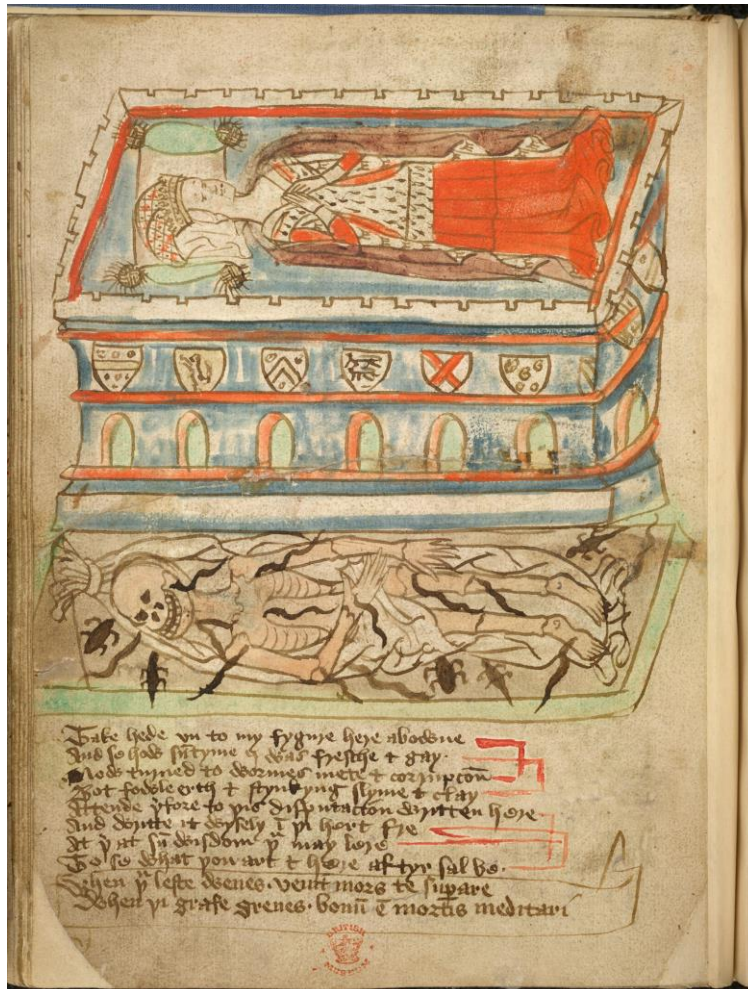 Take hede vn to my fygure here abowne
And se how sūtyme I was fresche & gay·
Now turned to wormes mete & corrupcōn
Bot fowle erth & stynkyng slyme & clay
Attende yfore to þis disputacion written here
And writte it wysely ī þi hert fre
At þͭ at sū wisdom þͧ may lere
To se what þou art & here aftyr sal be·
When þͧ leste wenes· venit mors te suꝑare
When þi grafe greues· bonū ē mortis meditari
BRITISH
MUSEUM